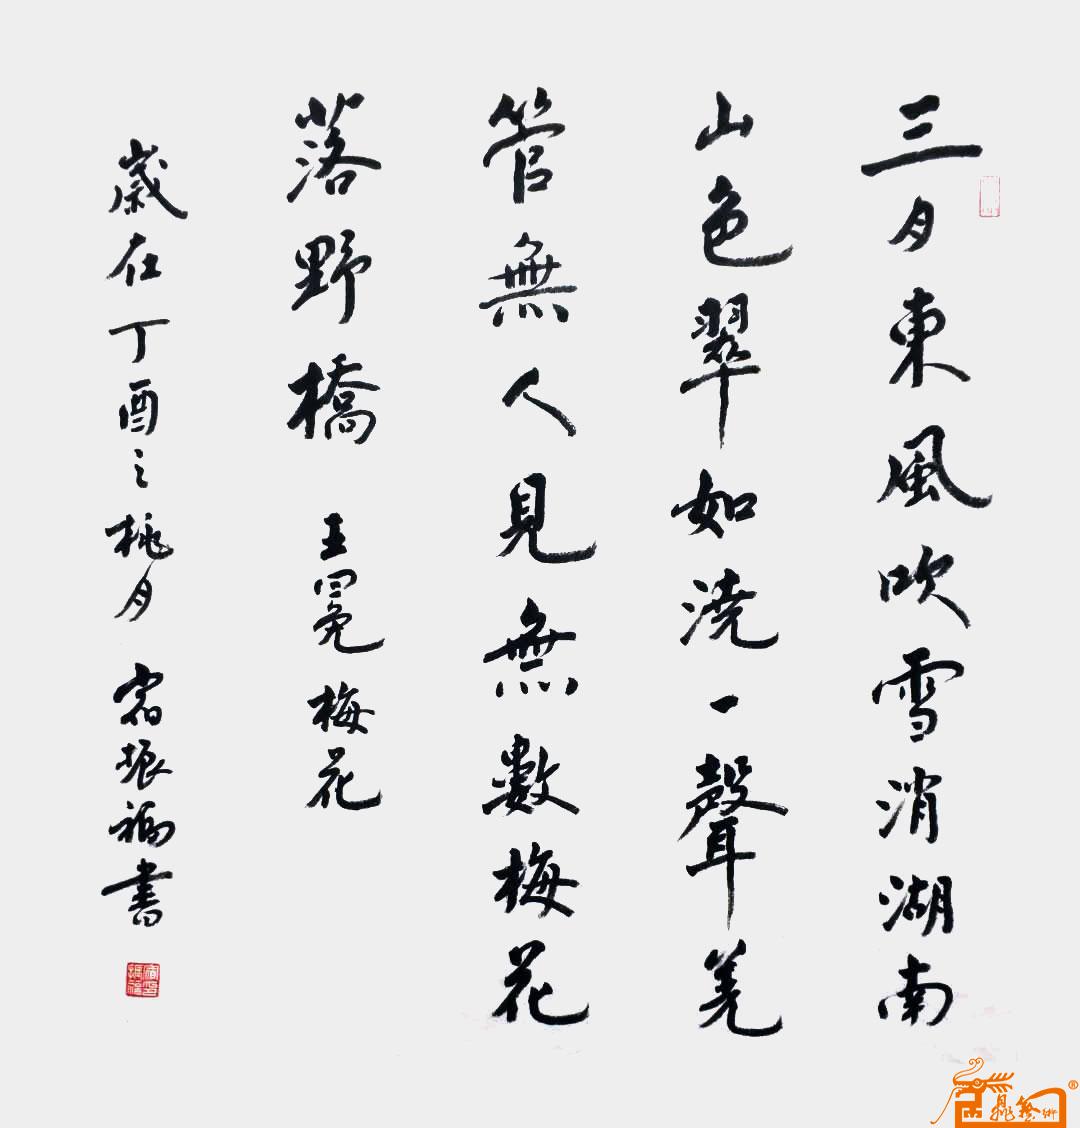 三月東風吹雪消湖南
山色翠如澆一聲羌
管無人見無數梅花
落野橋 王冕 梅花
歲在丁酉之桃月 宿振福書